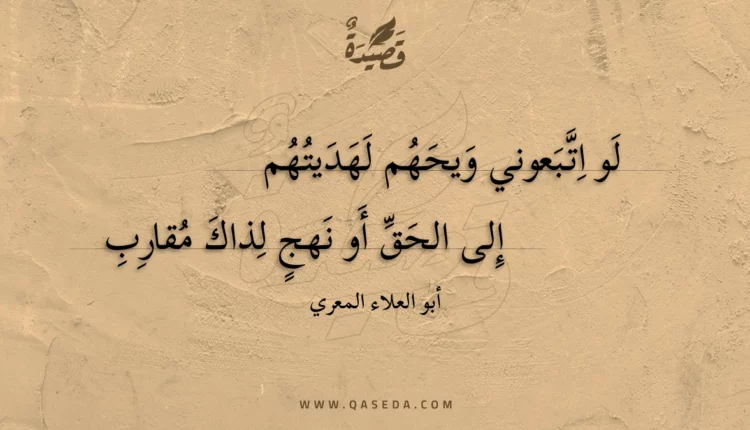 قَصِيدَةٌ
لَو اِتَّبَعوني وَيحَهُم لَهَدَيتُهُم
إِلى الحَقِّ أَو نَهجٍ لِذاكَ مُقارِبِ
أبو العلاء المعري
WWW.QASEDA.COM